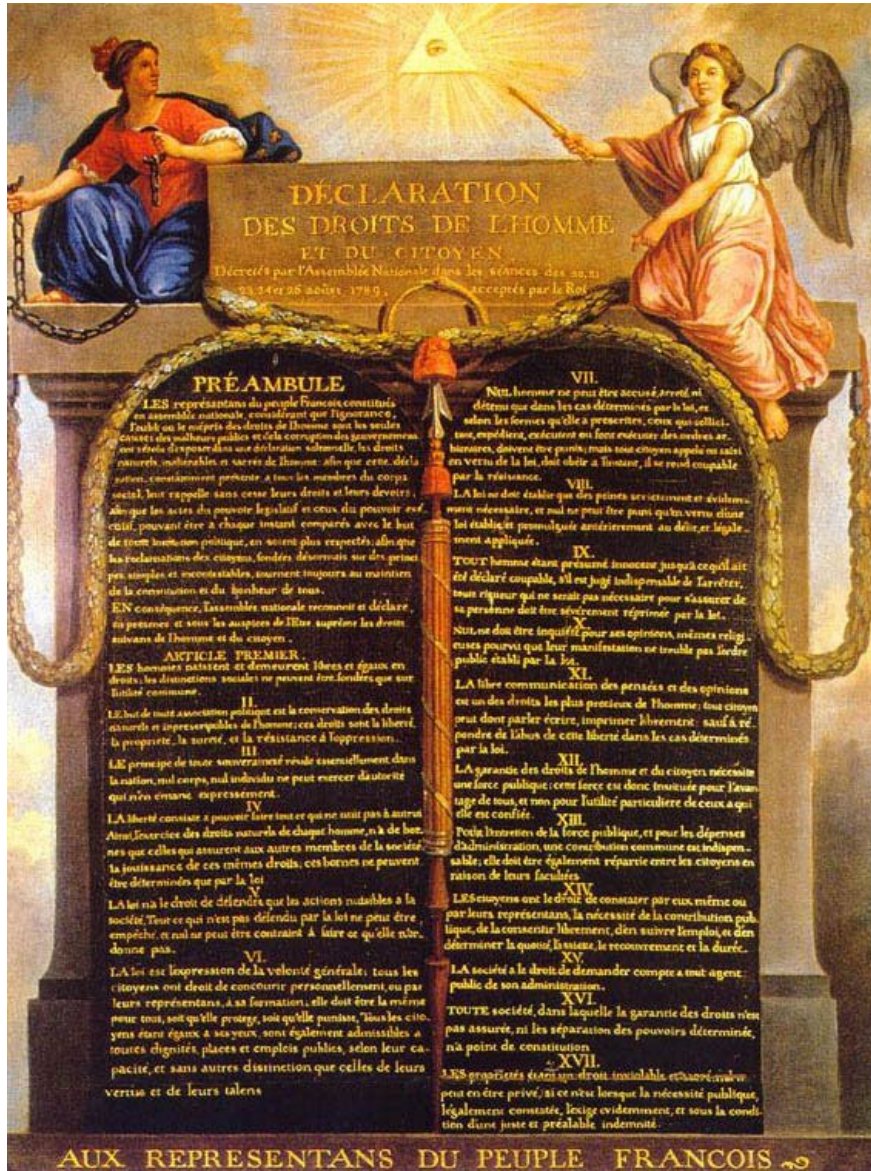 DÉCLARATION
DES DROITS DE L'HOMME
ET DU CITOYEN,
Décretés par l'Assemblée Nationale dans les séances des 20, 21
23, 24 et 26 août 1789, acceptés par le Roi
PRÉAMBULE
LES représantans du peuple François, constitués
en assemblée nationale, considérant que l'ignorance,
l'oubli ou le mépris des droits de l'homme sont les seules
causes des malheurs publics et de la corruption des gouvernemens
ont résolu d'exposer dans une déclaration solemnelle, les droits
naturels, inaliénables et sacrés de l'homme: afin que cette décla
ration, constamment présente a tous les membres du corps
social, leur rappelle sans cesse leurs droits et leurs devoirs,
afin que les actes du pouvoir legislatif et ceux du pouvoir exé
cutif, pouvant être à chaque instant comparés avec le but
de toute institution politique, en soient plus respectés; afin que
les reclamations des citoyens, fondées désormais sur des princi
pes simples et incontestables, tournent toujours au maintien
de la constitution et du bonheur de tous.
EN conséquence, l'assemblée nationale reconnoit et déclare,
en presence et sous les auspices de l'Etre suprême les droits
suivans de l'homme et du citoyen.
ARTICLE PREMIER.
LES hommes naissent et demeurent libres et égaux en
droits; les distinctions sociales ne peuvent être fondées que sur
l'utilité commune.
II.
LE but de toute association politique est la conservation des droits
naturels et inprescriptibles de l'homme; ces droits sont la liberté,
la proprieté, la sureté, et la résistance à l'oppression.
III.
LE principe de toute souveraineté réside essentiellement dans
la nation, nul corps, nul individu ne peut exercer d'autorité
qui n'en émane expressement.
IV.
LA liberté consiste a pouvoir faire tout ce qui ne nuit pas à autrui
Ainsi, l'exercice des droits naturels de chaque homme, n'a de bor-
nes que celles qui assurent aux autres membres de la société
la jouissance de ces mêmes droits; ces bornes ne peuvent
être déterminées que par la loi
V.
LA loi n'a le droit de défendre que les actions nuisibles a la
société. Tout ce qui n'est pas défendu par la loi ne peut être
empêché, et nul ne peut être contraint à faire ce qu'elle n'or-
donne pas.
VI.
LA loi est l'expression de la volonté générale; tous les
citoyens ont droit de concourir personnellement, ou par
leurs représentans, à sa formation; elle doit être la même
pour tous, soit qu'elle protege, soit qu'elle punisse. Tous les cito-
yens étant égaux à ses yeux, sont également admissibles a
toutes dignités, places et emplois publics, selon leur ca-
pacité, et sans autres distinction que celles de leurs
vertus et de leurs talens
VII.
NUL homme ne peut être accusé, arreté, ni
détenu que dans les cas déterminés par la loi, et
selon les formes qu'elle a prescrites, ceux qui sollici-
tent, expédient, exécutent ou font exécuter des ordres ar-
bitraires, doivent être punis; mais tout citoyen appelé ou saisi
en vertu de la loi, doit obéir a l'instant, il se rend coupable
par la résistance.
VIII.
LA loi ne doit établir que des peines strictement et évidem-
ment nécessaire, et nul ne peut être puni qu'en vertu d'une
loi établie, et promulguée antérierement au délit, et légale-
ment appliquée.
IX.
TOUT homme étant présumé innocent jusqu'à ce qu'il ait
été déclaré coupable, s'il est jugé indispensable de l'arrêter,
toute rigueur qui ne serait pas nécessaire pour s'assurer de
sa personne doit être sévèrement réprimée par la loi.
X.
NUL ne doit être inquiété pour ses opinions, mêmes religi-
euses pourvu que leur manifestation ne trouble pas l'ordre
public établi par la loi.
XI.
LA libre communication des pensées et des opinions
est un des droits les plus precieux de l'homme; tout citoyen
peut dont parler écrire, imprimer librement: sauf à ré-
pondre de l'abus de cette liberté dans les cas déterminés
par la loi.
XII.
LA garantie des droits de l'homme et du citoyen nécessite
une force publique; cette force est donc instituée pour l'avan-
tage de tous, et non pour l'utilité particuliere de ceux a qui
elle est confiée.
XIII.
POUR l'entretien de la force publique, et pour les dépenses
d'administration, une contribution commune est indispen-
sable; elle doit être également répartie entre les citoyens en
raison de leurs facultées
XIV.
LES citoyens ont le droit de constater par eux même ou
par leurs représentans, la nécessité de la contribution pub-
lique, de la consentir librement, d'en suivre l'emploi, et d'en
déterminer la quotité, l'assiete, le recouvrement et la durée.
XV.
LA société a le droit de demander compte a tout agent
public de son administration.
XVI.
TOUTE société, dans laquelle la garantie des droits n'est
pas assurée, ni les séparation des pouvoirs déterminée,
n'a point de constitution
XVII.
LES proprietés étant un droit inviolable et sacré, nul ne
peut en être privé, si ce n'est lorsque la nécessité publique,
légalement constatée, l'exige evidemment, et sous la condi-
tion d'une juste et préalable indemnité.
AUX REPRESENTANS DU PEUPLE FRANCOIS